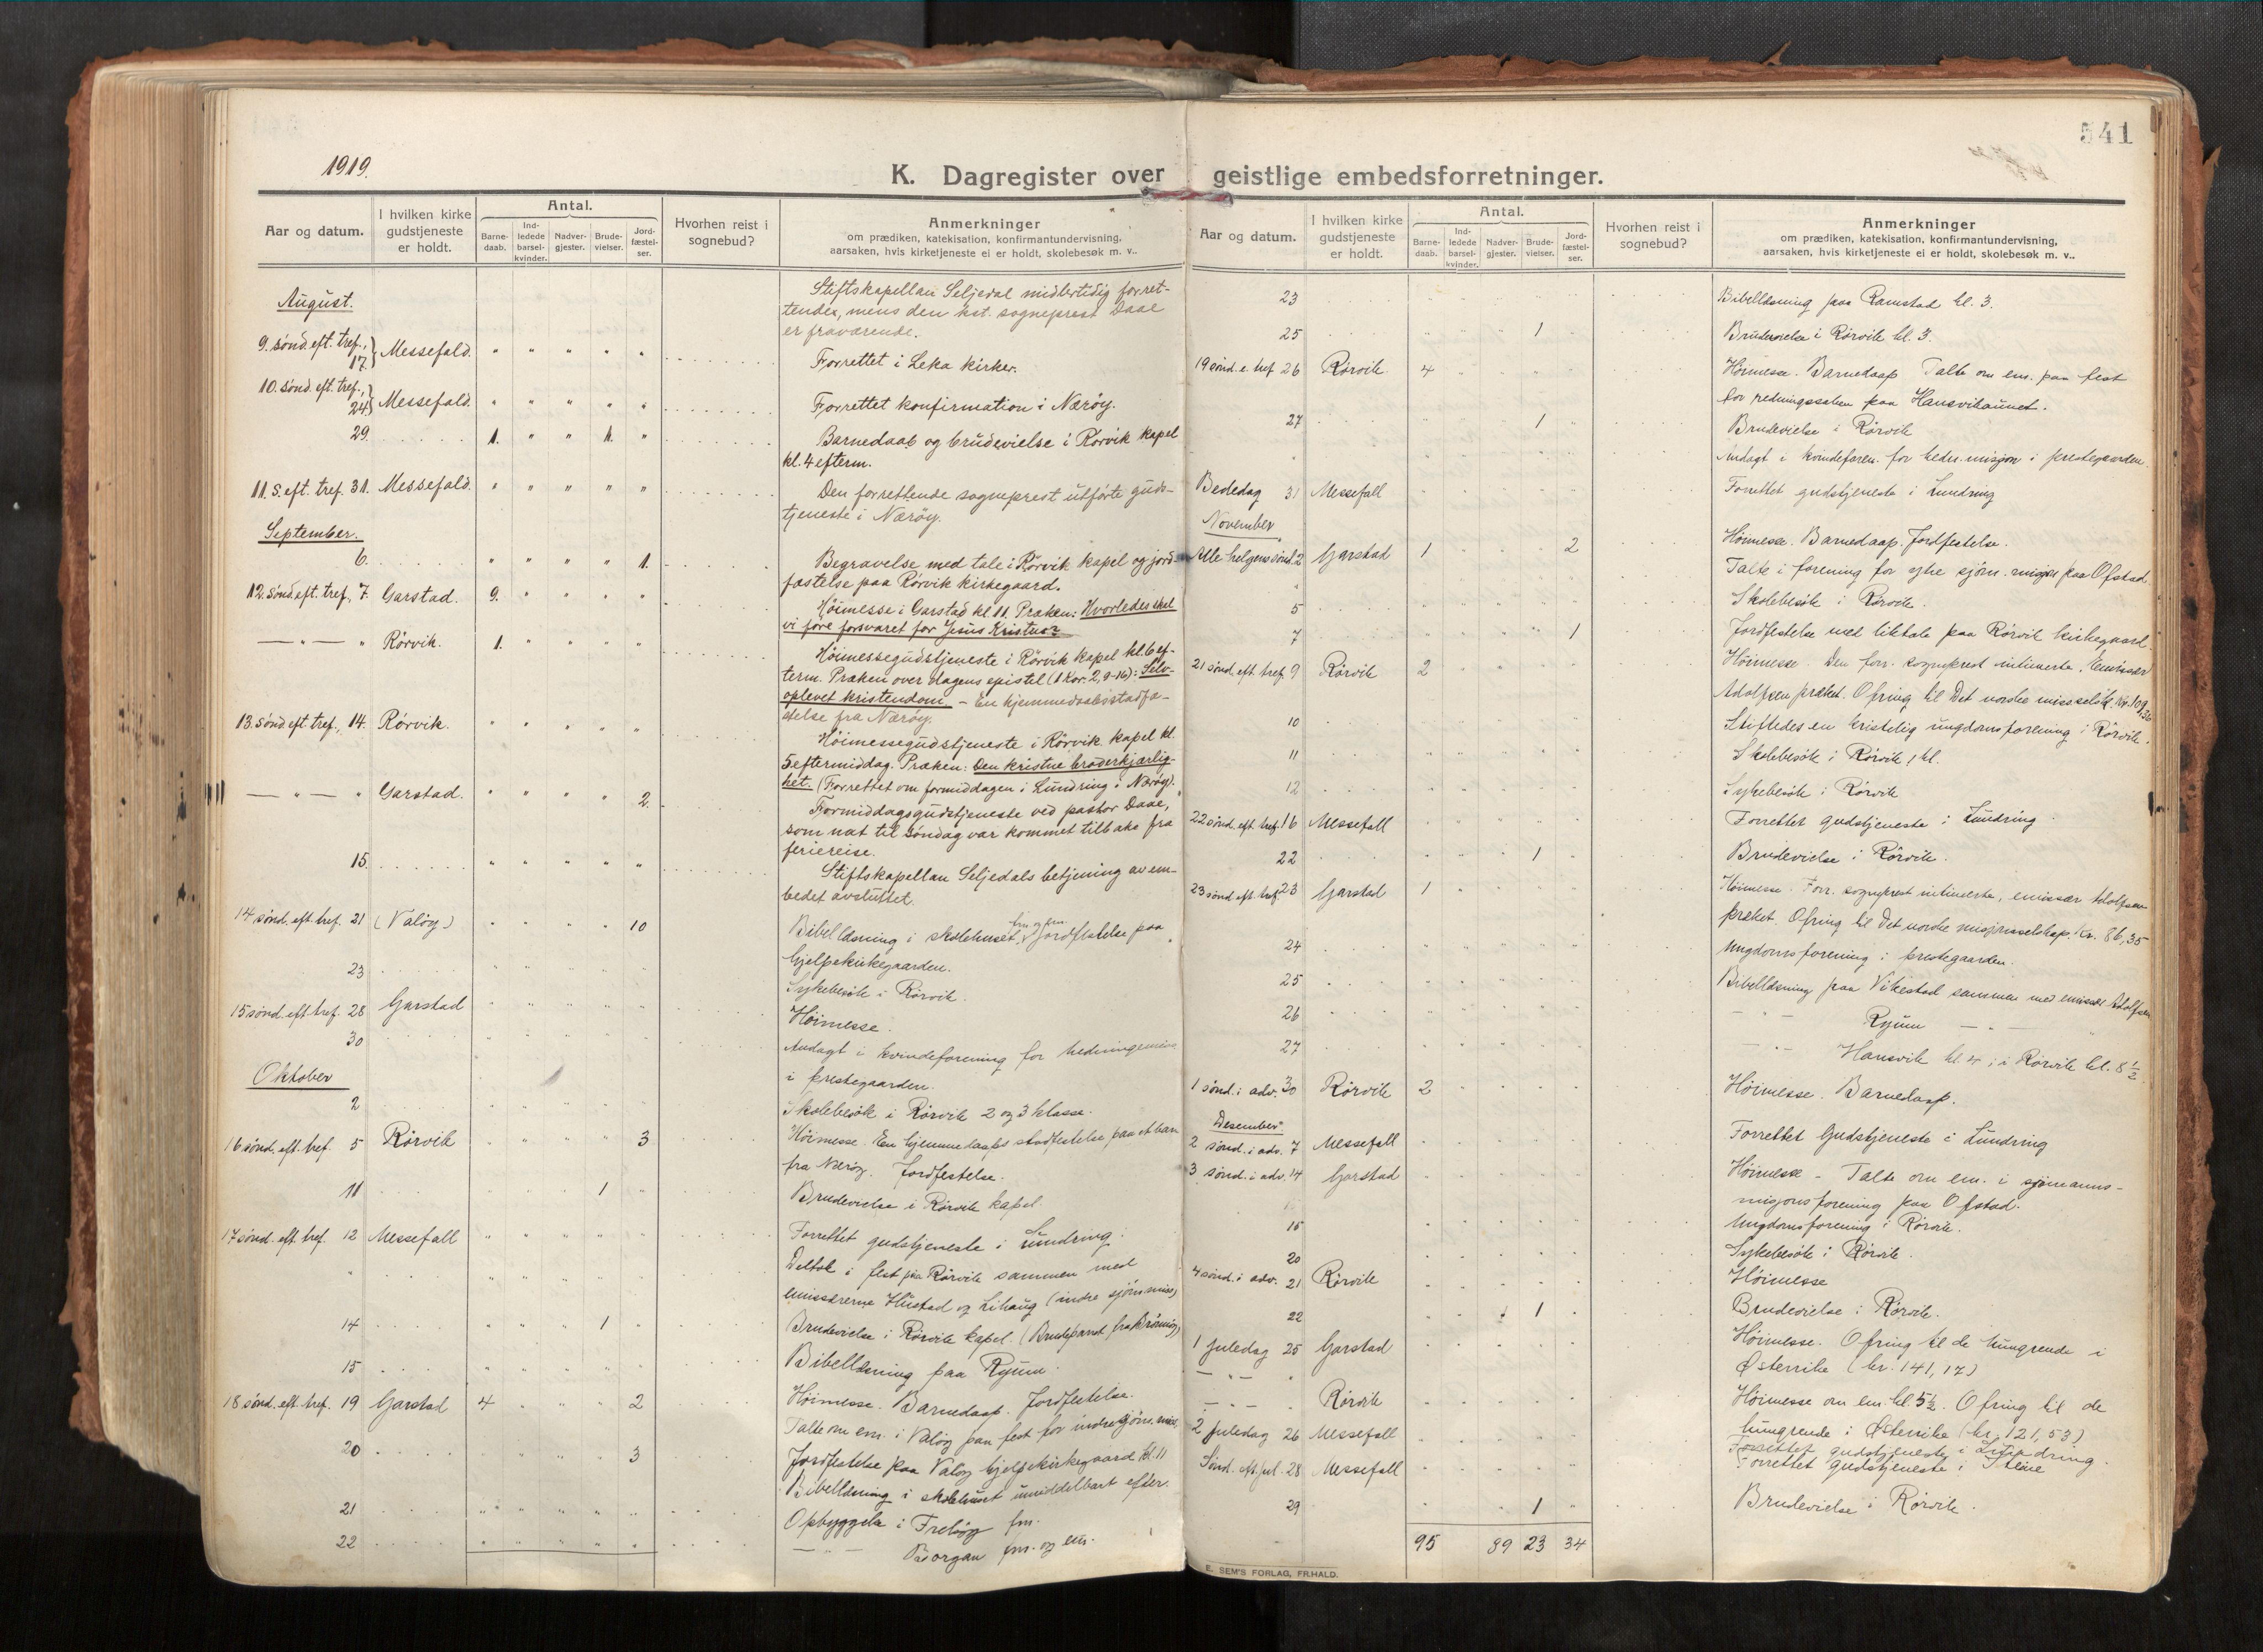 541
1919.
K. Dagregister over geistlige embedsforretninger.
Aar og datum.
I hvilken kirke gudstjeneste er holdt.
Antal.
Barne-daab.
Ind-ledede barsel-kvinder.
Nadver-gjester.
Brude-vielser.
Jord-fæstel-ser.
Hvorhen reist i sognebud?
Anmerkninger
om prædiken, katekisation, konfirmantundervisning,
aarsaken, hvis kirketjeneste ei er holdt, skolebesøk m. v..
August.
Stiftskapellan Seljedal midlertidig forret-
tendes, mens den kst. sogneprest Daae
er fraværende.
9. sønd. eft. tref., 17. Messefald. " " " " " Forrettet i Leka kirke.
10. sønd. eft. tref., 24. Messefald. " " " " " Forrettet konfirmation i Nærøy.
29. 1. " " 1. " Barnedaab og brudevielse i Rørvik kapel
kl. 4 efterm.
11. s. eft. tref. 31. Messefald. " " " " " Den forrettende sogneprest utførte guds-
tjeneste i Nærøy.
September.
6. " " " " 1. Begravelse med tale i Rørvik kapel og jord-
fæstelse paa Rørvik kirkegaard.
12. sønd. eft. tref., 7. Garstad. 9. " " " " Høimesse i Garstad kl. 11. Præken: Hvorledes skal
vi føre forsvaret for Jesus Kristus?
— " — " Rørvik. 1. Høimessegudstjeneste i Rørvik kapel kl. 6 ef-
term. Præken over dagens epistel (1 Kor. 2, 9-16): Selv-
oplevet kristendom. – En hjemmedaabsstadfæ-
stelse fra Nærøy.
13. sønd. eft. tref., 14. Rørvik. " " " " " Høimessegudstjeneste i Rørvik kapel kl.
5 eftermiddag. Præken: Den kristne broderkjærlig-
het. (Forrettet om formiddagen i Lundring i Nærøy).
— " — " Garstad. " " " " 2. Formiddagsgudstjeneste ved pastor Daae,
som nat til søndag var kommet tilbake fra
feriereise.
15. " " " " " Stiftskapellan Seljedals betjening av em-
bedet avsluttet.
14 sønd. eft. tref. 21 (Valøy) " " " " 10 Bibellæsning i skolehuset fm og em. Jordfestelse paa
hjelpekirkegaarden.
23 Sykebesøk i Rørvik.
15 sønd. eft. tref. 28 Garstad Høimesse.
30 Andagt i kvindeforening for hedningemis
i prestegaarden.
Oktober
2 Skolebesøk i Rørvik 2 og 3 klasse.
16 sønd. eft. tref. 5 Rørvik 3 Høimesse. En hjemmedaabs stadfestelse paa et barn
fra Nærøy. Jordfestelse.
11 1 Brudevielse i Rørvik kapel.
17 sønd. eft. tref. 12 Messefall Forrettet gudstjeneste i Lundring.
" Deltok i fest paa Rørvik sammen med
emissærerne Hustad og Lihaug (indre sjømmiss)
14 1 Brudevielse i Rørvik kapel. (Brudeparret fra Brønnøy)
15 Bibellæsning paa Ryum.
18 sønd. eft. tref. 19 Garstad 4 2 Høimesse. Barnedaap. Jordfestelse.
Talte om em. i Valøy paa fest for indre sjøm. miss.
20 3 Jordfestelse paa Valøy hjelpekirkegaard kl. 11
Bibellæsning i skolehuset umiddelbart efter.
21 Opbyggelse i Frelsøy fm.
22 — " — Borgan fm. og em.
Aar og datum.
I hvilken kirke gudstjeneste er holdt.
Antal.
Barne-daab.
Ind-ledede barsel-kvinder.
Nadver-gjester.
Brude-vielser.
Jord-fæstel-ser.
Hvorhen reist i sognebud?
Anmerkninger
om prædiken, katekisation, konfirmantundervisning,
aarsaken, hvis kirketjeneste ei er holdt, skolebesøk m. v..
23 Bibellæsning paa Ramstad kl. 3.
25 1 Brudevielse i Rørvik kl. 3.
19 sønd. e. tref 26 Rørvik. 4 Høimesse. Barnedaap Talte om em. paa fest
for redningssaken paa Hansvikaunet.
27 1 Brudevielse i Rørvik
" Andagt i kvindeforen. for hedn. misjon i prestegaarden.
Bededag 31 Messefall Forrettet gudstjeneste i Lundring
November
Alle helgens sønd. 2 Garstad 1 2 Høimesse. Barnedaap. Jordfestelse.
" Talte i forening for ytre sjøm. misjon paa Ofstad
5 Skolebesøk i Rørvik.
7 1 Jordfestelse med liktale paa Rørvik kirkegaard.
21 sønd. eft. tref. 9 Rørvik 2 Høimesse. Den forr. sogneprest intimerte. Emissær
Adolfsen præket. Ofring til Det norske misselsk. kr. 109,36
10 Stiftedes en kristelig ungdomsforening i Rørvik.
11 Skolebesøk i Rørvik 1 kl.
12 Sykebesøk i Rørvik
22 sønd. eft. tref. 16 Messefall Forrettet gudstjeneste i Lundring.
22 1 Brudevielse i Rørvik.
23 sønd. eft. tref. 23 Garstad 1 Høimesse. Forr. sogneprest intimerte, emissær Adolfsen
præket. Ofring til Det norske misjonsselskap. Kr. 86,35
24 Ungdomsforening i prestegaarden.
25 Bibellæsning paa Vikestad sammen med emissær Adolfsen
26 — " — Ryum — " —
27 — " — Hansvik kl. 4, i Rørvik kl. 8 1/2
1 sønd. i adv. 30 Rørvik 2 Høimesse. Barnedaap.
Desember
2 sønd. i adv. 7 Messefall Forrettet Gudstjeneste i Lundring
3 sønd. i adv. 14 Garstad Høimesse – Talte om em. i sjømanns-
misjonsforening paa Ofstad.
15 Ungdomsforening i Rørvik.
20 Sykebesøk i Rørvik.
4 sønd. i adv. 21 Rørvik Høimesse
22 1 Brudevielse i Rørvik.
1 juledag 25 Garstad Høimesse. Ofring til de hungrende i
Østerrike (kr. 141,17)
— " — " Rørvik Høimesse om em. kl. 5 1/2. Ofring til de
hungrende i Østerrike (kr. 121,53)
2 juledag 26 Messefall Forrettet gudstjeneste i Lundring.
Sønd. eft. jul. 28 Messefall Forrettet gudstjeneste i Steine
29 1 Brudevielse i Rørvik.
95 89 23 34
E. SEM'S FORLAG, FR.HALD.